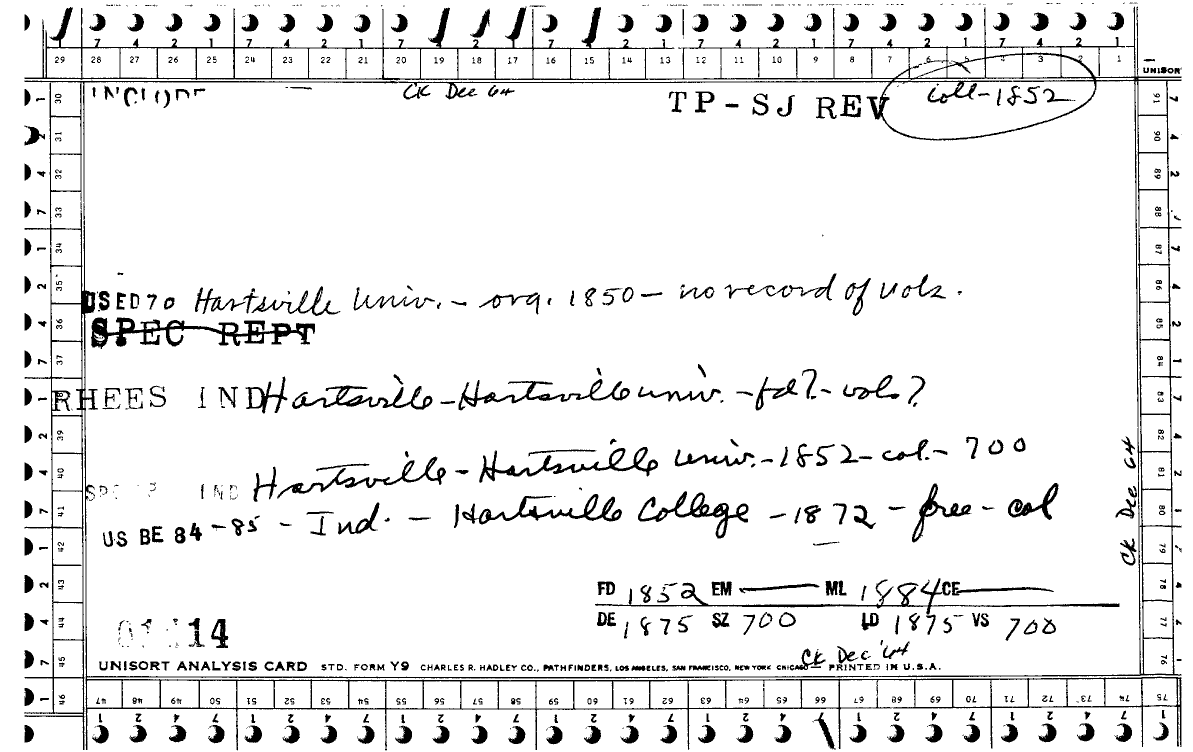 7 4 2 1 7 4 2 1 7 4 2 1 7 4 2 1 7 4 2 1 7 4 2 1 7 4 2 1
29 28 27 26 25 24 23 22 21 20 19 18 17 16 15 14 13 12 11 10 9 8 7 6 5 4 3 2 1
UNISORT
CK Dec 64
TP-SJ REV
coll-1852
USED70 Hartsville Univ. - org. 1850 - no record of vols.
SPEC REPT
RHEES IND Hartsville - Hartsville univ. - fd? - vols?
IND Hartsville - Hartsville Univ. - 1852 - col. - 700
US BE 84-85 - Ind. - Hartsville College - 1872 - free - col
CK Dec 64
FD 1852 EM — ML 1884 CE —
DE 1875 SZ 700 LD 1875 VS 700
14
CK Dec '64
UNISORT ANALYSIS CARD STD. FORM Y9 CHARLES R. HADLEY CO., PATHFINDERS, LOS ANGELES, SAN FRANCISCO, NEW YORK CHICAGO PRINTED IN U.S.A.
30 31 32 33 34 35 36 37 39 40 41 42 43 44 45 46
91 90 89 88 87 86 85 84 83 82 81 80 79 78 77 76 75
47 48 49 50 51 52 53 54 55 56 57 58 59 60 61 62 63 64 65 66 67 68 69 70 71 72 73 74